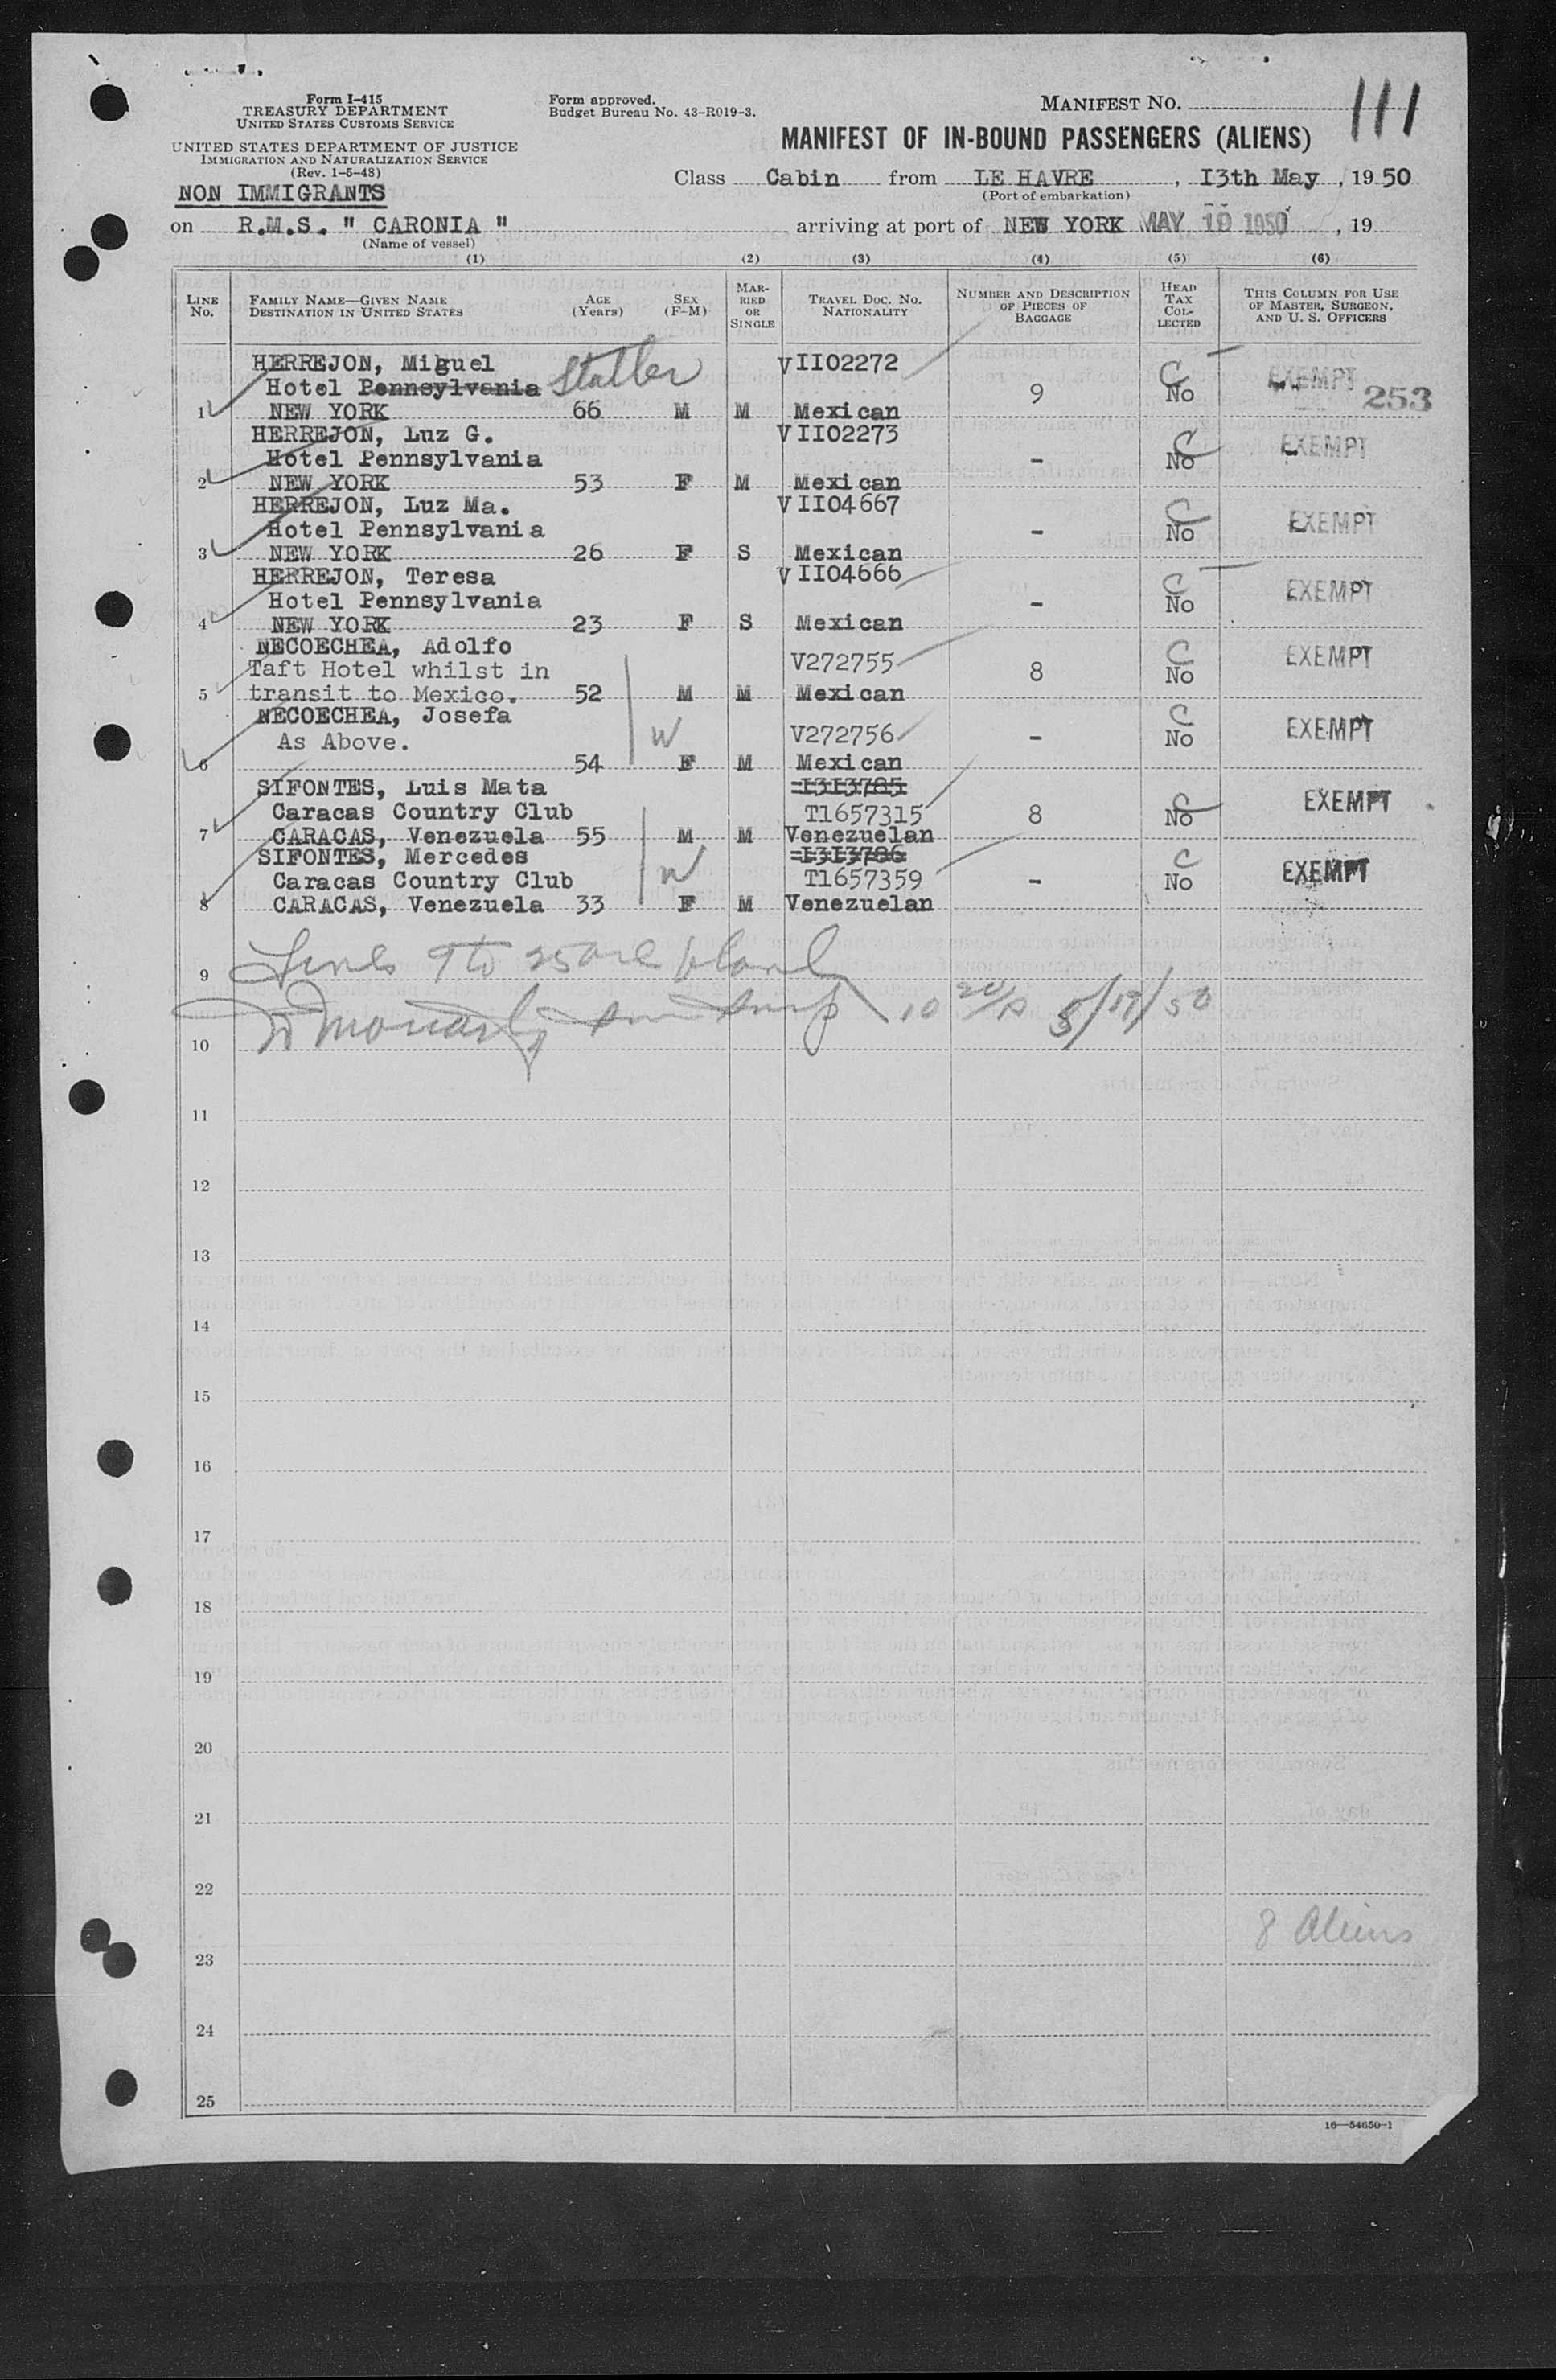 111
Form I-415
TREASURY DEPARTMENT
UNITED STATES CUSTOMS SERVICE
UNITED STATES DEPARTMENT OF JUSTICE
IMMIGRATION AND NATURALIZATION SERVICE
(Rev. 1-5-48)
Form approved.
Budget Bureau No. 43-R019-3.
MANIFEST NO.
MANIFEST OF IN-BOUND PASSENGERS (ALIENS)
NON IMMIGRANTS
Class Cabin from LE HAVRE, 13th May, 1950
(Port of embarkation)
on R.M.S. " CARONIA " arriving at port of NEW YORK MAY 19 1950, 19
(Name of vessel)
(1) (2) (3) (4) (5) (6)
LINE NO. FAMILY NAME—GIVEN NAME DESTINATION IN UNITED STATES AGE (Years) SEX (F-M) MARRIED OR SINGLE TRAVEL DOC. NO. NATIONALITY NUMBER AND DESCRIPTION OF PIECES OF BAGGAGE HEAD TAX COLLECTED THIS COLUMN FOR USE OF MASTER, SURGEON, AND U. S. OFFICERS
HERREJON, Miguel VII02272 C EXEMPT
Hotel Pennsylvania Statler 9 No 253
1 NEW YORK 66 M M Mexican
HERREJON, Luz G. VII02273 C EXEMPT
Hotel Pennsylvania - No
2 NEW YORK 53 F M Mexican
HERREJON, Luz Ma. VII04667 C EXEMPT
Hotel Pennsylvania - No
3 NEW YORK 26 F S Mexican
HERREJON, Teresa VII04666 C EXEMPT
Hotel Pennsylvania - No
4 NEW YORK 23 F S Mexican
NECOECHEA, Adolfo V272755 C EXEMPT
Taft Hotel whilst in 8 No
5 transit to Mexico. 52 M M Mexican
NECOECHEA, Josefa V272756 C EXEMPT
As Above. W - No
6 54 F M Mexican
SIFONTES, Luis Mata I3I3785 C EXEMPT
Caracas Country Club T1657315 8 No
7 CARACAS, Venezuela 55 M M Venezuelan
SIFONTES, Mercedes I3I3786 C EXEMPT
Caracas Country Club W T1657359 - No
8 CARACAS, Venezuela 33 F M Venezuelan
9 Lines 9 to 25 are blank
10 5/19/50
11
12
13
14
15
16
17
18
19
20
21
22
8 Aliens
23
24
25
16—54650-1